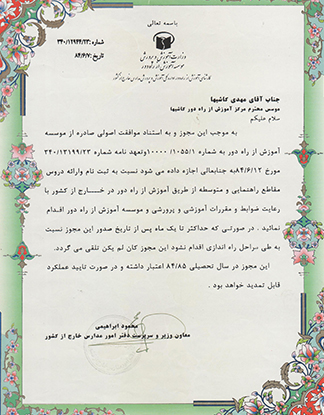 باسمه تعالی
شماره: ۳۴۰/۱۲۹۴۴/۲۳
تاریخ: ۸۴/۶/۷
وزارت آموزش و پرورش
موسسه آموزش از راه دور
جناب آقای مهدی کاشیها
موسس محترم مرکز آموزش از راه دور کاشیها
سلام علیکم
به موجب این مجوز و به استناد موافقت اصولی صادره از موسسه
آموزش از راه دور به شماره ۱۰۰۰۰/۱۰۵۵/۱ وتعهد نامه شماره ۳۴۰/۱۲۱۹۹/۲۳
مورخ ۸۴/۶/۱۲ به جنابعالی اجازه داده می شود نسبت به ثبت نام وارائه دروس
مقاطع راهنمایی و متوسطه از طریق آموزش از راه دور در خارج از کشور با
رعایت ضوابط و مقررات آموزشی و پرورشی و موسسه آموزش از راه دور اقدام
نمائید . در صورتی که حداکثر تا یک ماه پس از تاریخ صدور این مجوز نسبت
به طی مراحل راه اندازی اقدام نشود این مجوز کان لم یکن تلقی می گردد.
این مجوز در سال تحصیلی ۸۴/۸۵ اعتبار داشته و در صورت تایید عملکرد
قابل تمدید خواهد بود .
محمود ابراهیمی
معاون وزیر و سرپرست دفتر امور مدارس خارج از کشور